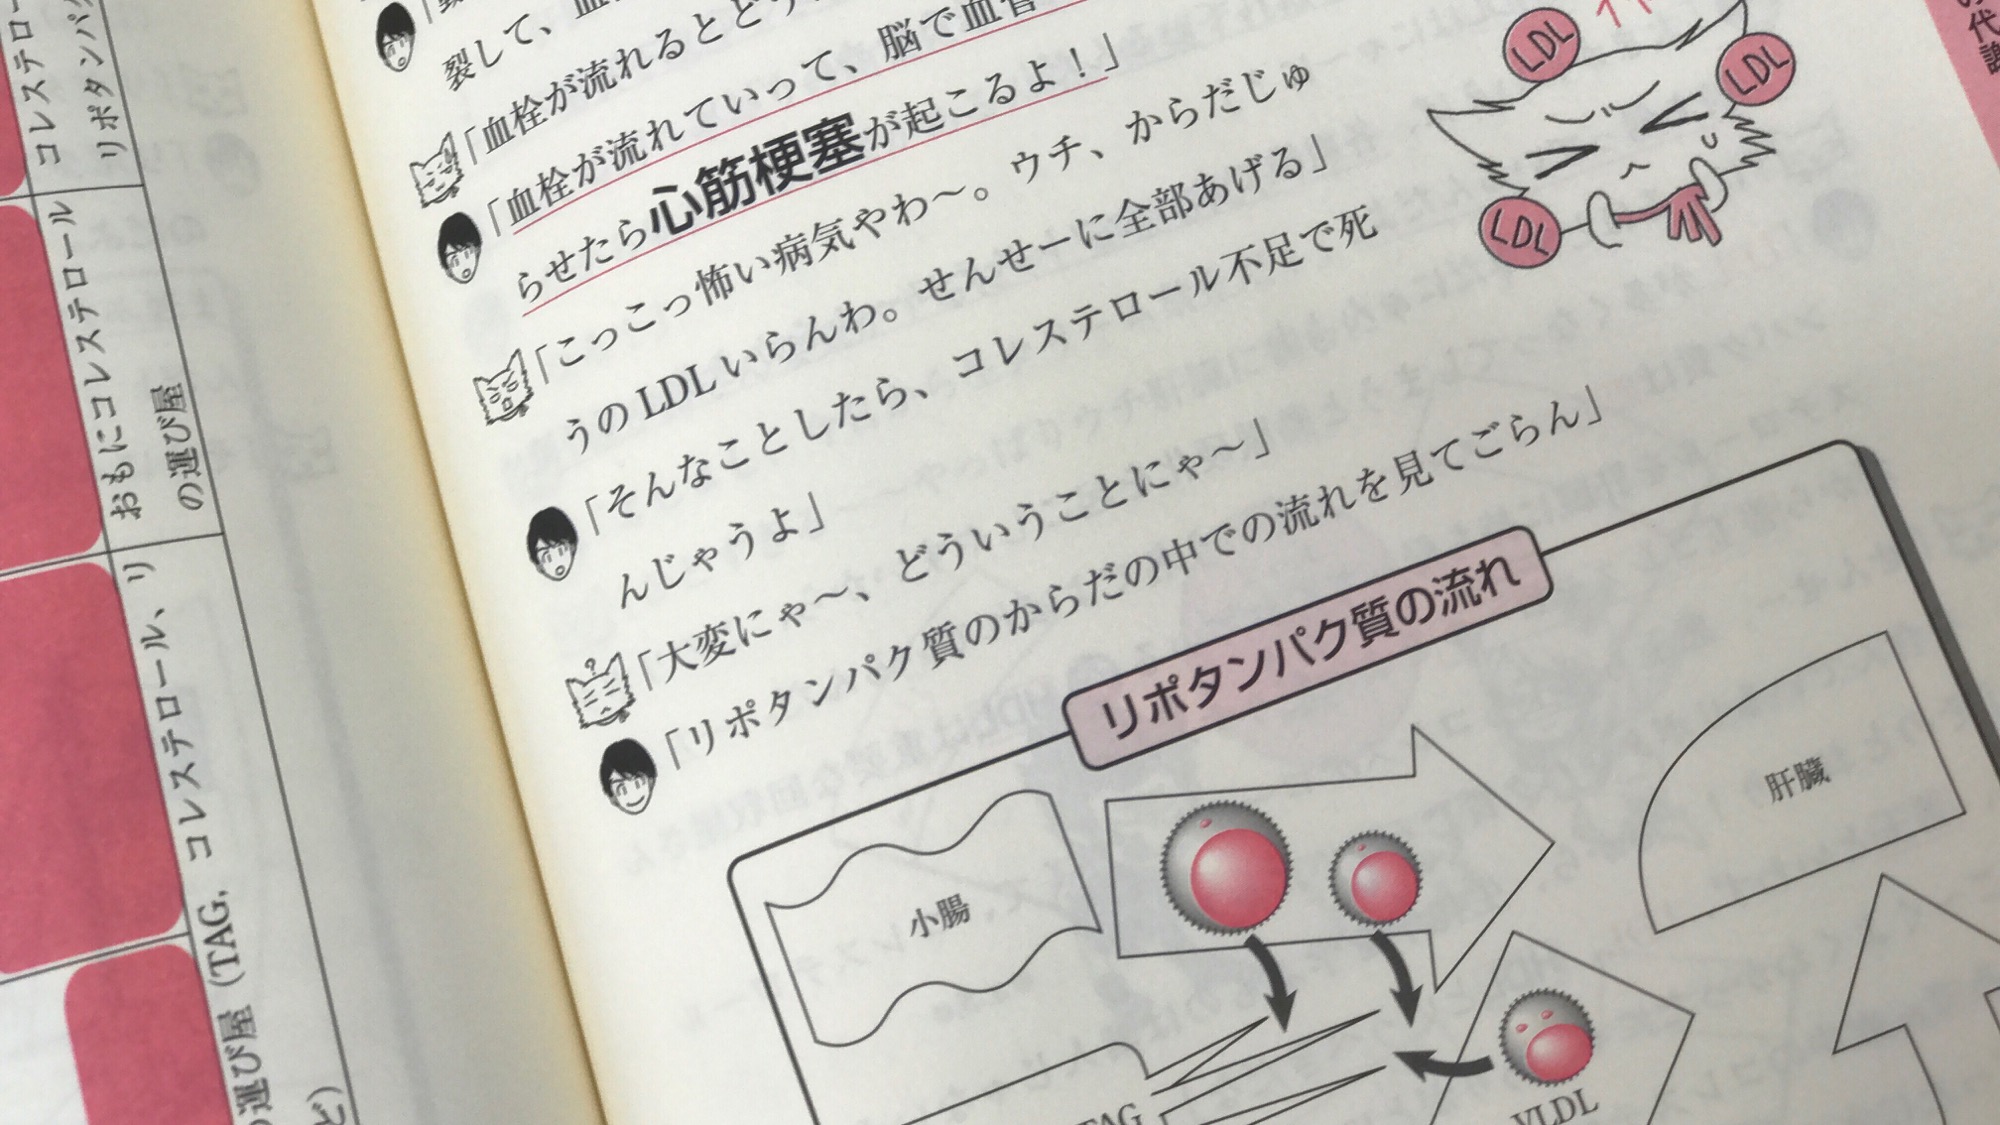 コレステロ
リポタンパク
おもにコレステロール
の運び屋
コレステロール、リ
の運び屋（TAG,
ど）
裂して、血
「血栓が流れるとど
「血栓が流れていって、脳で血管
らせたら心筋梗塞が起こるよ！」
「こっこっ怖い病気やわ〜。ウチ、からだじゅ
うのLDLいらんわ。せんせーに全部あげる」
「そんなことしたら、コレステロール不足で死
んじゃうよ」
「大変にゃ〜、どういうことにゃ〜」
「リポタンパク質のからだの中での流れを見てごらん」
LDL
LDL
LDL
の代謝
リポタンパク質の流れ
小腸
肝臓
TAG
VLDL